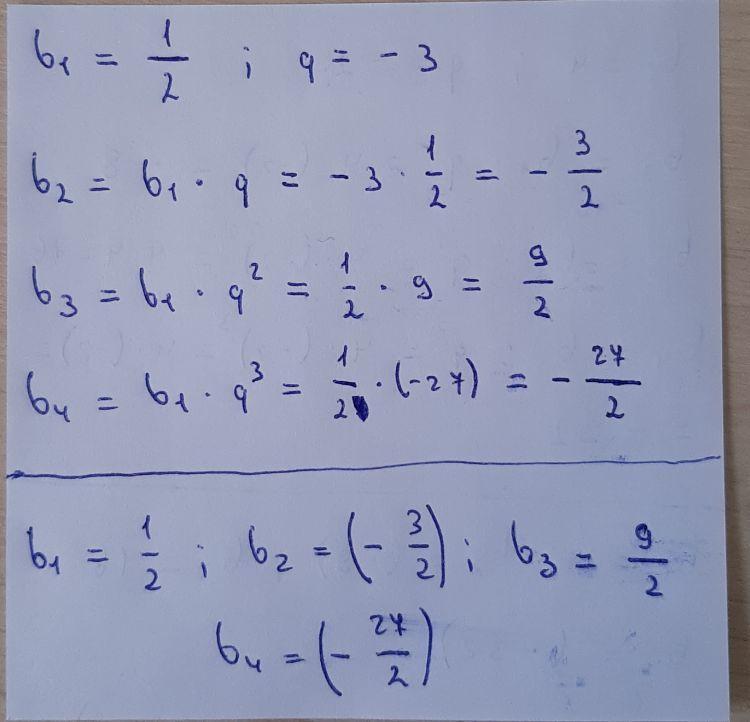 b₁ = 1/2 ; q = -3
b₂ = b₁ · q = -3 · 1/2 = - 3/2
b₃ = b₁ · q² = 1/2 · 9 = 9/2
b₄ = b₁ · q³ = 1/2 · (-27) = - 27/2
b₁ = 1/2 ; b₂ = (- 3/2) ; b₃ = 9/2
b₄ = (- 27/2)